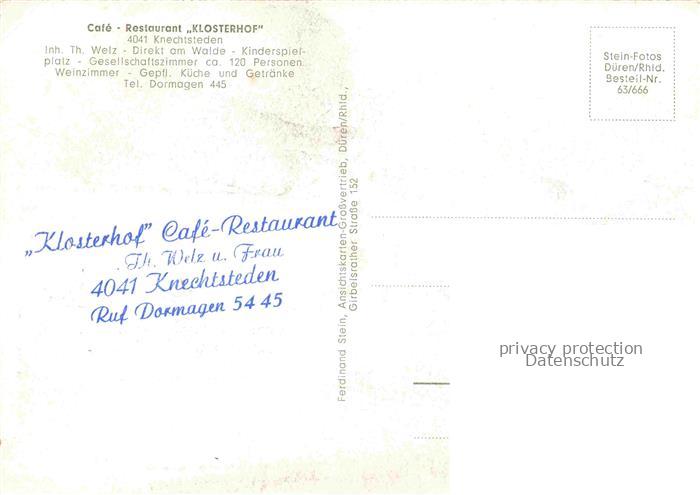 Café - Restaurant „KLOSTERHOF"
4041 Knechtsteden
Inh. Th. Welz - Direkt am Walde - Kinderspiel-
platz - Gesellschaftszimmer ca. 120 Personen
Weinzimmer - Gepfl. Küche und Getränke
Tel. Dormagen 445
Stein-Fotos
Düren/Rhld.
Bestell-Nr.
63/666
Ferdinand Stein, Ansichtskarten-Großvertrieb, Düren/Rhld.,
Girbelsrather Straße 152
„Klosterhof" Café-Restaurant
Th. Welz u. Frau
4041 Knechtsteden
Ruf Dormagen 54 45
privacy protection
Datenschutz